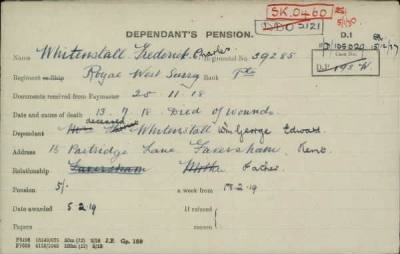 SK.0460
5/50.
DEPENDANT'S PENSION.
D.1
D.D.O 5121
105020 15/12/19
Case No.
D.P. 198 W.
Name Whitenstall Frederick Charles Regimental No. 39285
Regiment or Ship Royal West Surrey Rank Pte
Documents received from Paymaster 25.11.18
Date and cause of death 13.7.18 Died of wounds
deceased
Dependant Mrs Whitenstall Wm George Edward
Address 15 Partridge Lane, Faversham, Kent.
Relationship Faversham Mother Father
Pension 5/- a week from 18.2.19
Date awarded 5.2.19 If refused
Papers reason
J.P. Gp. 159